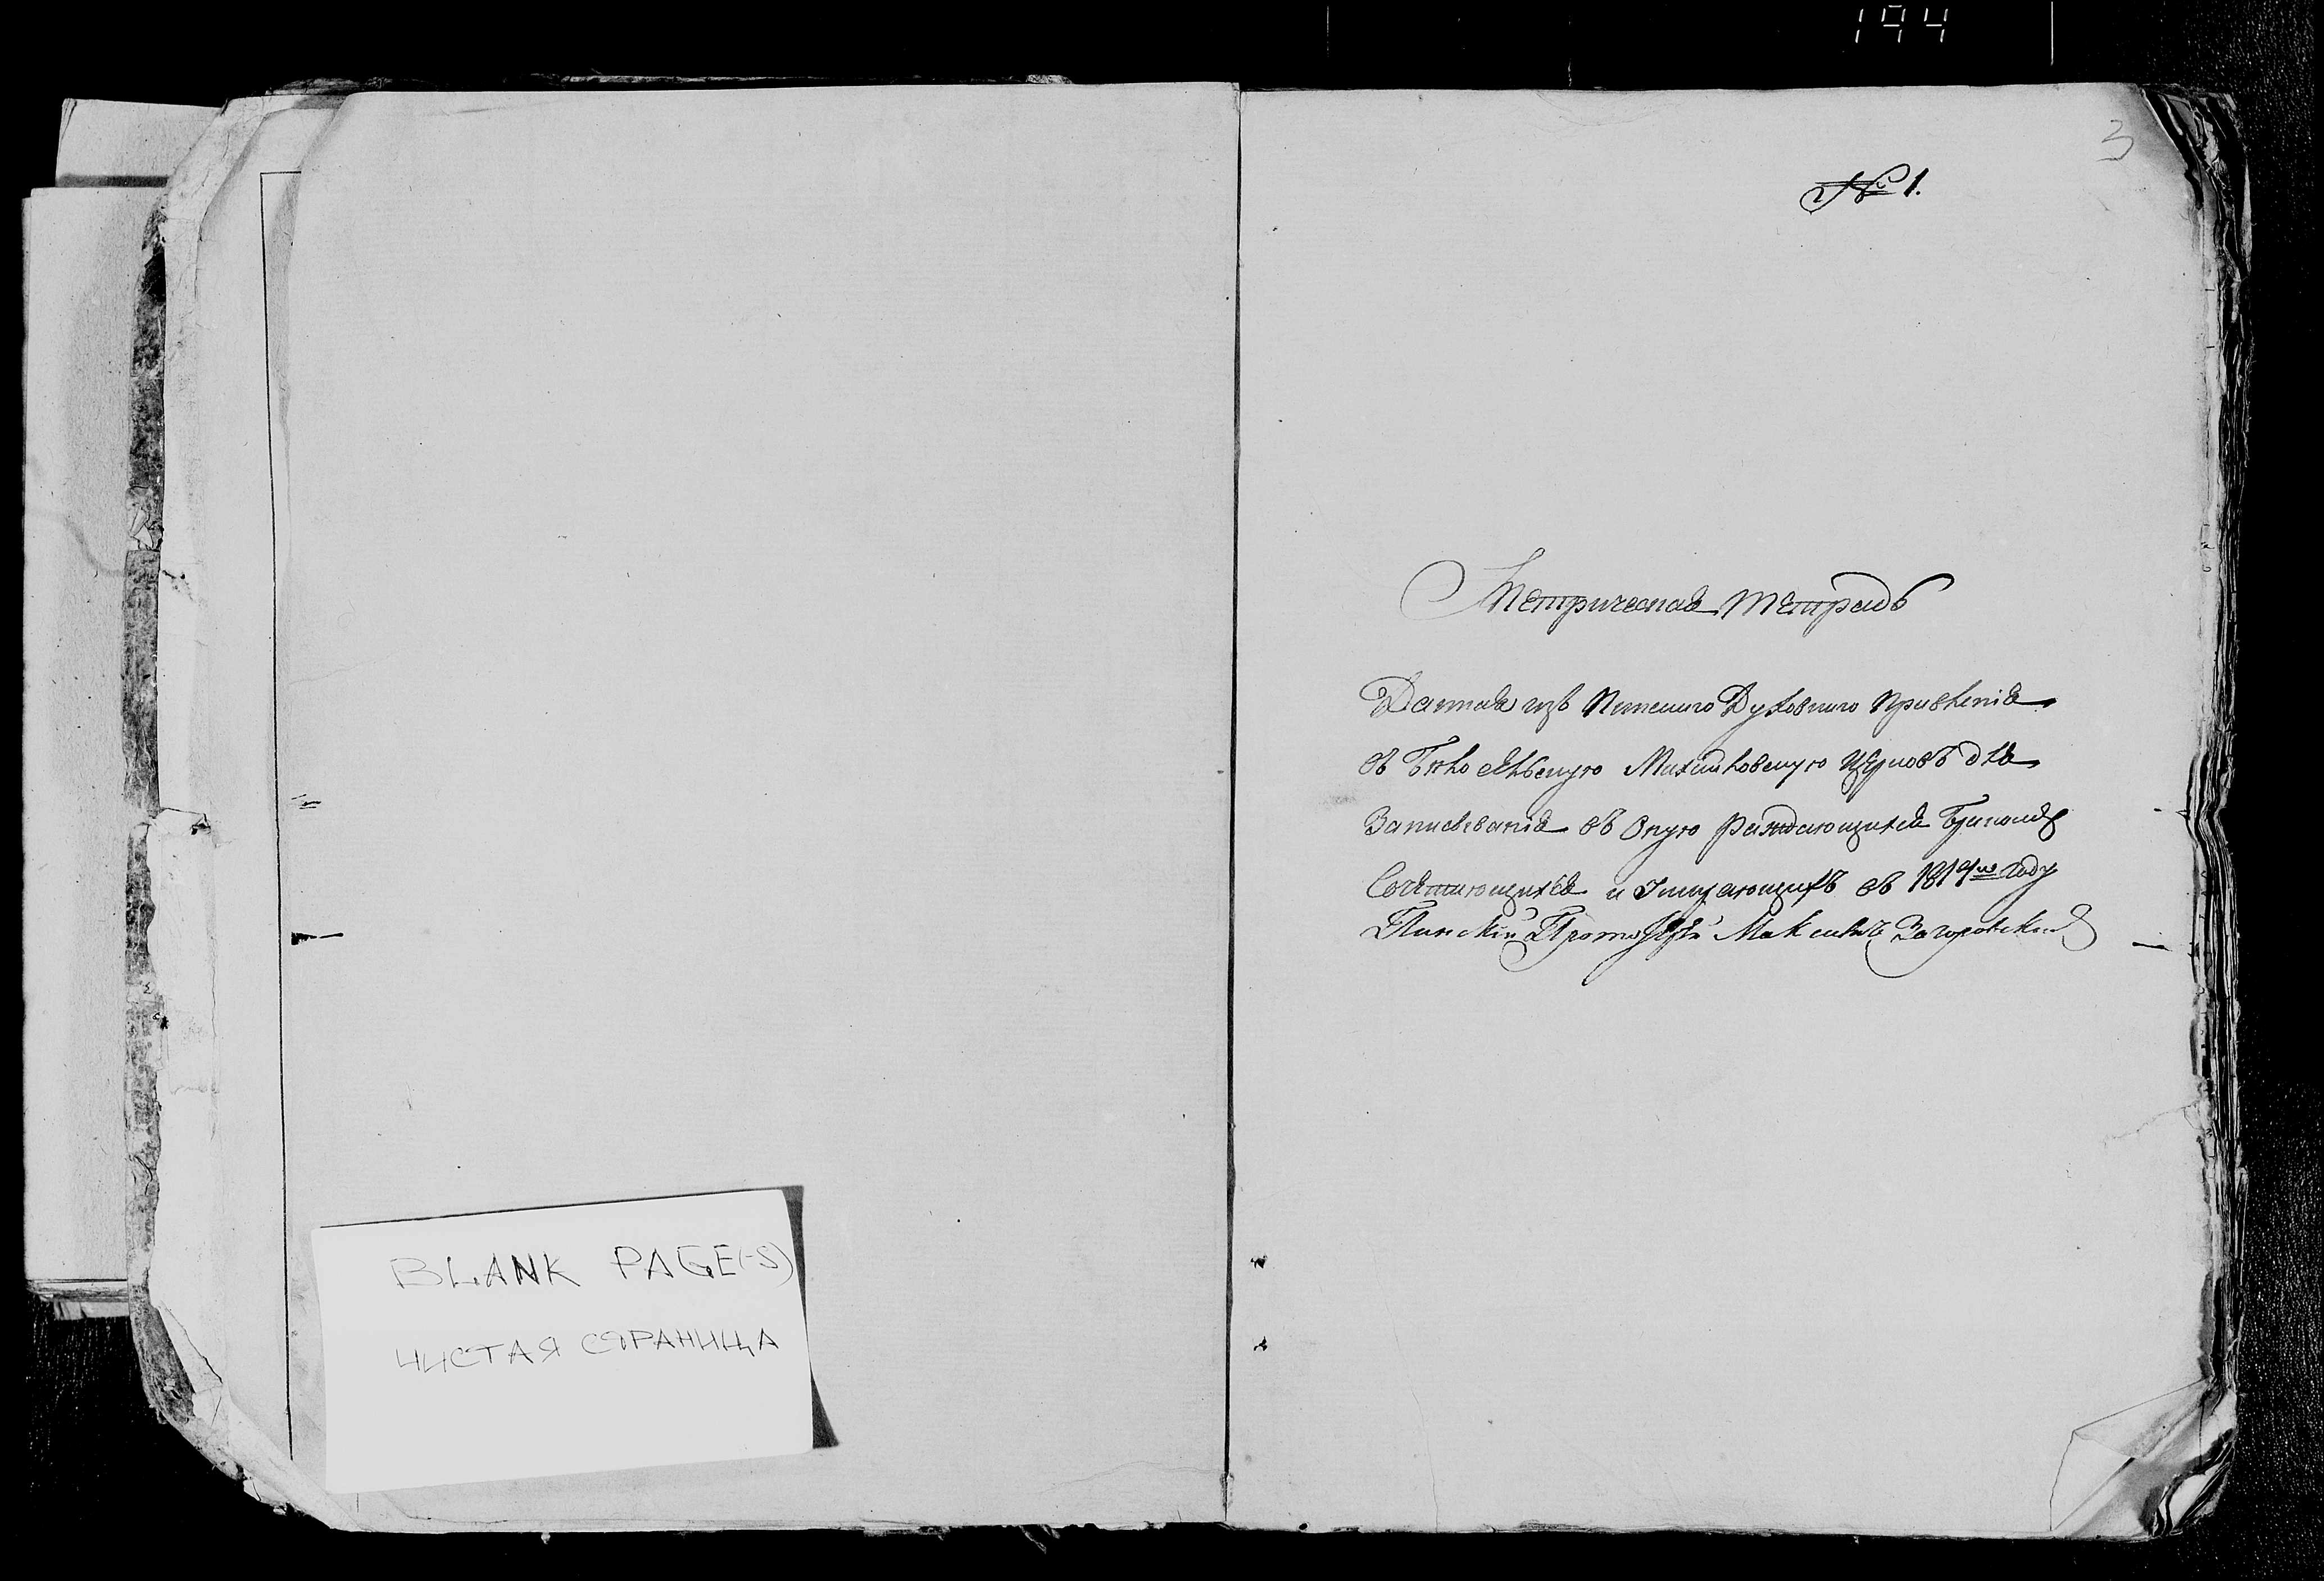 194
3
№ 1.
Метрическая тетрадь
Данная изъ Пинскаго Духовнаго Правленія
въ Михайловскую Церковь для
Записыванія въ Оную раждающихся Бракомъ
Сочетающихся и Умирающихъ въ 1814мъ Году
Пинскій Протоіерей Максимъ Загоровскій
BLANK PAGE(-S)
ЧИСТАЯ СТРАНИЦА